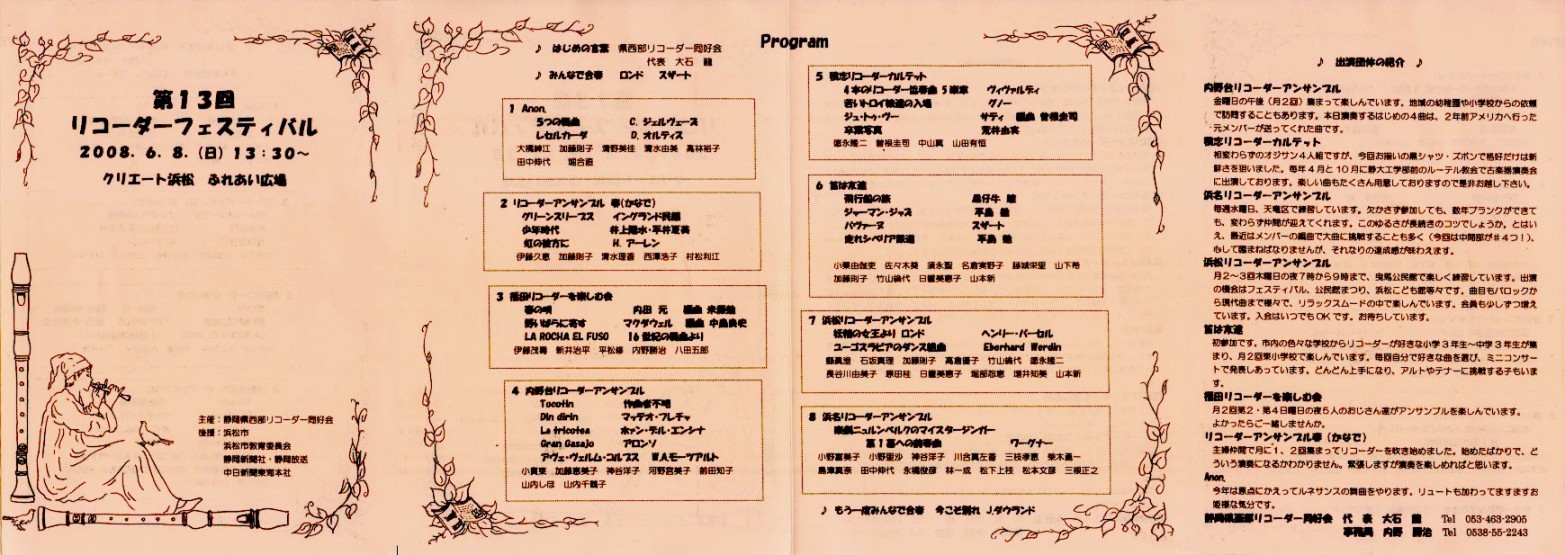 第13回
リコーダーフェスティバル
2008. 6. 8. (日) 13：30～
クリエート浜松 ふれあい広場
主催：静岡県西部リコーダー同好会
後援：浜松市
浜松市教育委員会
静岡新聞社・静岡放送
中日新聞東海本社
Program
♪ はじめの言葉 県西部リコーダー同好会
代表 大石 龍
♪ みんなで合奏 ロンド スザート
1 Anon.
5つの舞曲 C. ジェルヴェーズ
レセルカーダ D. オルティス
大橋紳江 加藤則子 清野美佳 清水由美 高林裕子
田中伸代 堀合直
2 リコーダーアンサンブル 春(かなで)
グリーンスリーブス イングランド民謡
少年時代 井上陽水・平井夏美
虹の彼方に H. アーレン
伊藤久恵 加藤則子 清水理香 西澤浩子 村松利江
3 福田リコーダーを楽しむ会
春の唄 内田 元 編曲
野いばらに寄す マクダウェル 編曲 中島良史
LA ROCHA EL FUSO 16世紀の舞曲より
伊藤茂壽 新井治平 平松修 内野勝治 八田五郎
4 内野台リコーダーアンサンブル
Tocotin 作曲者不明
Din dirin マッテオ・フレチャ
La tricotea ホァン・デル・エンシナ
Gran Gasajo アロンソ
アヴェ・ヴェルム・コルプス W.A.モーツアルト
小貫東 加藤恵美子 神谷洋子 河野宮美子 前田知子
山内しほ 山内千鶴子
5 積志リコーダーカルテット
4本のリコーダー協奏曲 5楽章 ヴィヴァルディ
若いトロイ娘達の入場 グノー
ジュ・トゥ・ヴー サティ 編曲 曽根圭司
卒業写真 荒井由実
徳永隆二 曽根圭司 中山真 山田有恒
6 笛は友達
飛行船の旅 黒仔牛 雄
ジャーマン・ジャズ 平島 勉
パヴァーヌ スザート
走れシベリア鉄道 平島 勉
小栗由伽吏 佐々木葵 須永聖 名倉実野子 藤城栄里 山下希
加藤則子 竹山倫代 日響美恵子 山本新
7 浜松リコーダーアンサンブル
妖精の女王より ロンド ヘンリー・パーセル
ユーゴスラビアのダンス組曲 Eberhard Werdin
石坂真理 加藤則子 高倉優子 竹山倫代 徳永隆二
長谷川由美子 原田桂 日響美恵子 堀部忍恵 増井知美 山本新
8 浜名リコーダーアンサンブル
楽劇ニュルンベルクのマイスタージンガー
第1幕への前奏曲 ワーグナー
小野富美子 小野里沙 神谷洋子 川合真左香 三枝孝恵 柴木勇一
島津真奈 田中伸代 永橋俊彦 林一成 松下上枝 松本文彦 三根正之
♪ もう一度みんなで合奏 今こそ別れ J.ダウランド
♪ 出演団体の紹介 ♪
内野台リコーダーアンサンブル
金曜日の午後（月2回）集まって楽しんでいます。地域の幼稚園や小学校からの依頼
で訪問することもあります。本日演奏するはじめの4曲は、2年前アメリカへ行った
元メンバーが送ってくれた曲です。
積志リコーダーカルテット
相変わらずのオジサン4人組ですが、今回お揃いの黒シャツ・ズボンで格好だけは新
鮮さを狙いました。毎年4月と10月に静大工学部前のルーテル教会で古楽器演奏会
に出演しております。楽しい曲もたくさん用意しておりますので是非お越し下さい。
浜名リコーダーアンサンブル
毎週水曜日、天竜区で練習しています。欠かさず参加しても、数年ブランクができて
も、変わらず仲間が迎えてくれます。このゆるさが長続きのコツでしょうか。とはい
え、最近はメンバーの編曲で大曲に挑戦することも多く（今回は中間部が＃4つ！）、
心して臨まねばなりませんが、それなりの達成感が味わえます。
浜松リコーダーアンサンブル
月2～3回木曜日の夜7時から9時まで、曳馬公民館で楽しく練習しています。出演
の機会はフェスティバル、公民館まつり、浜松こども館等々です。曲目もバロックか
ら現代曲まで様々で、リラックスムードの中で楽しんでいます。会員も少しずつ増え
ています。入会はいつでもOKです。お待ちしています。
笛は友達
初参加です。市内の色々な学校からリコーダーが好きな小学3年生～中学3年生が集
まり、月2回東小学校で楽しんでいます。毎回自分で好きな曲を選び、ミニコンサー
トで発表しあっています。どんどん上手になり、アルトやテナーに挑戦する子もいま
す。
福田リコーダーを楽しむ会
月2回第2・第4日曜日の夜5人のおじさん達がアンサンブルを楽しんでいます。
よかったらご一緒しませんか。
リコーダーアンサンブル春（かなで）
主婦仲間で月に1、2回集まってリコーダーを吹き始めました。始めたばかりで、ど
ういう演奏になるかわかりません。緊張しますが演奏を楽しめればと思います。
Anon.
今年は原点にかえってルネサンスの舞曲をやります。リュートも加わってますますお
姫様な気分です。
静岡県西部リコーダー同好会 代 表 大石 龍 Tel 053-463-2905
事務局 内野 勝治 Tel 0538-55-2243